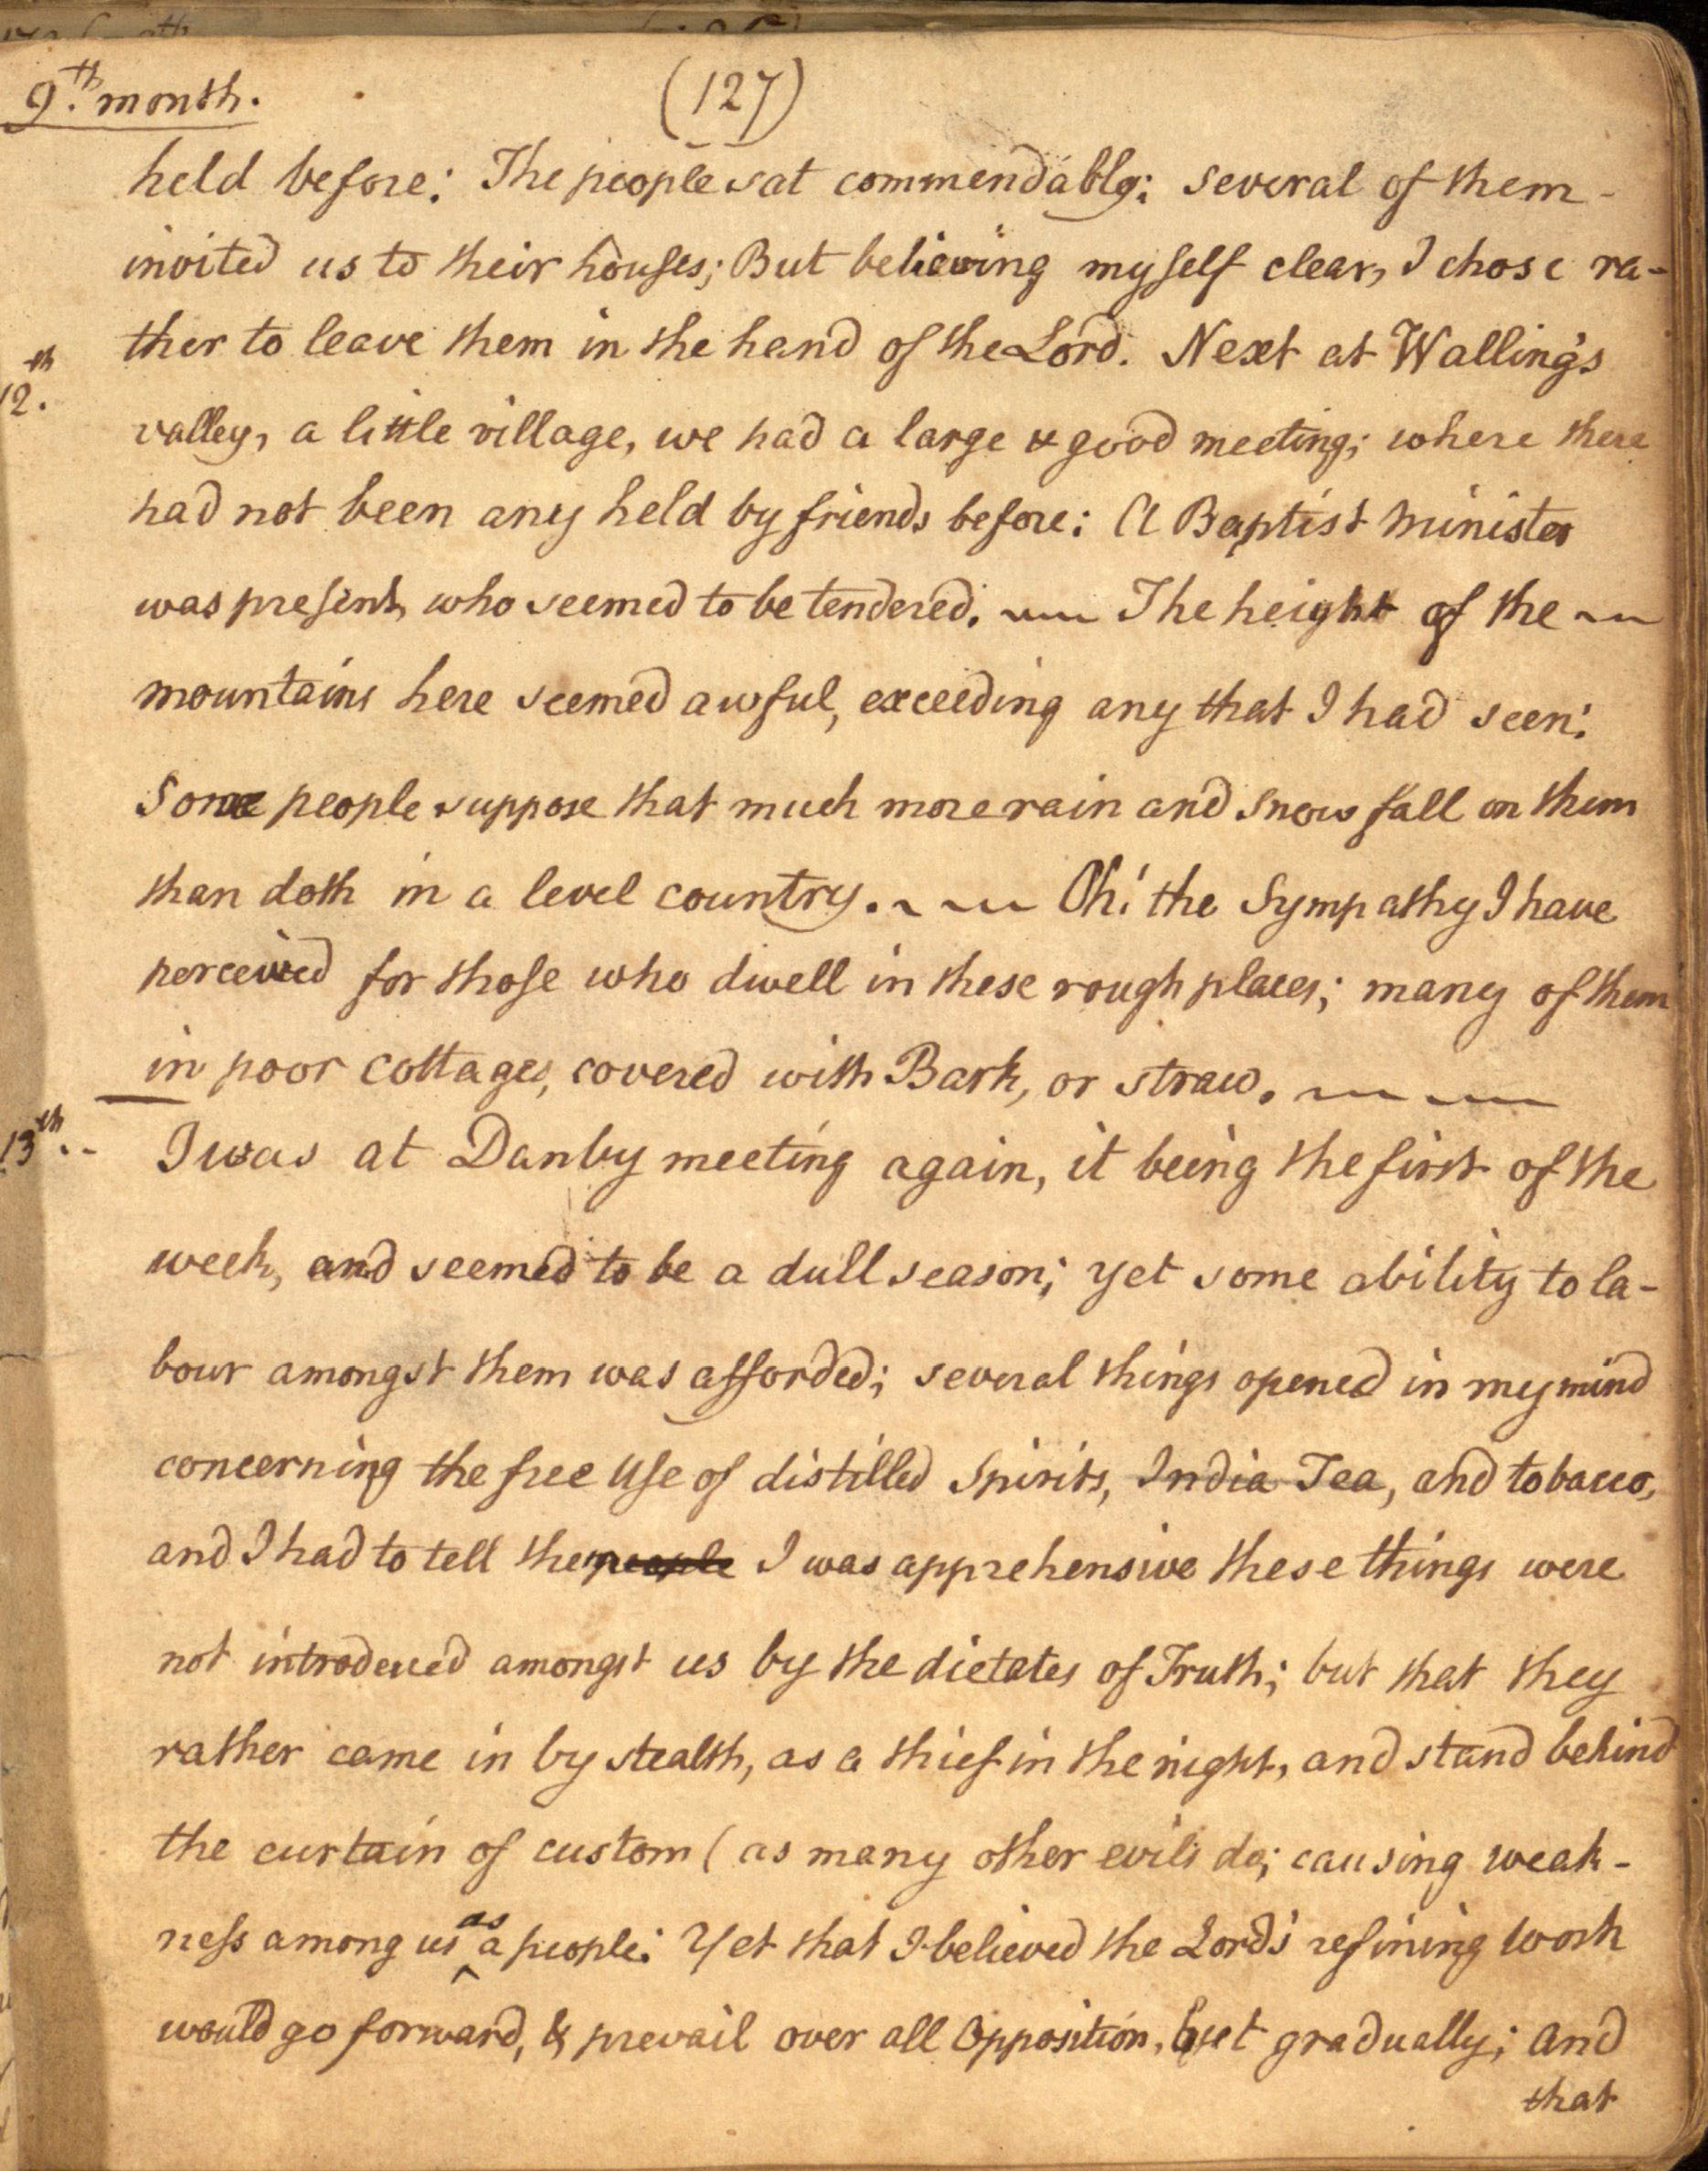 9.th month.
(127)
held before: The people sat commendably; several of them
invited us to their houses; But believing myself clear, I chose ra-
ther to leave them in the hand of the Lord. Next at Walling's
12.th
valley, a little village, we had a large & good meeting; where there
had not been any held by friends before: A Baptist minister
was present, who seemed to be tendered. The height of the
mountains here seemed awful, exceeding any that I had seen:
Some people suppose that much more rain and snow fall on them
than doth in a level country. Oh! the Sympathy I have
perceived for those who dwell in these rough places; many of them
in poor cottages, covered with Bark, or straw.
13.th
I was at Danby meeting again, it being the first of the
week, and seemed to be a dull season; yet some ability to la-
bour amongst them was afforded; several things opened in my mind
concerning the free Use of distilled Spirits, India Tea, and tobacco,
and I had to tell the people I was apprehensive these things were
not introduced amongst us by the dictates of Truth; but that they
rather came in by stealth, as a thief in the night, and stand behind
the curtain of custom (as many other evils do; causing weak-
ness among us as a people: Yet that I believed the Lord's refining work
would go forward, & prevail over all Opposition, but gradually; and
that